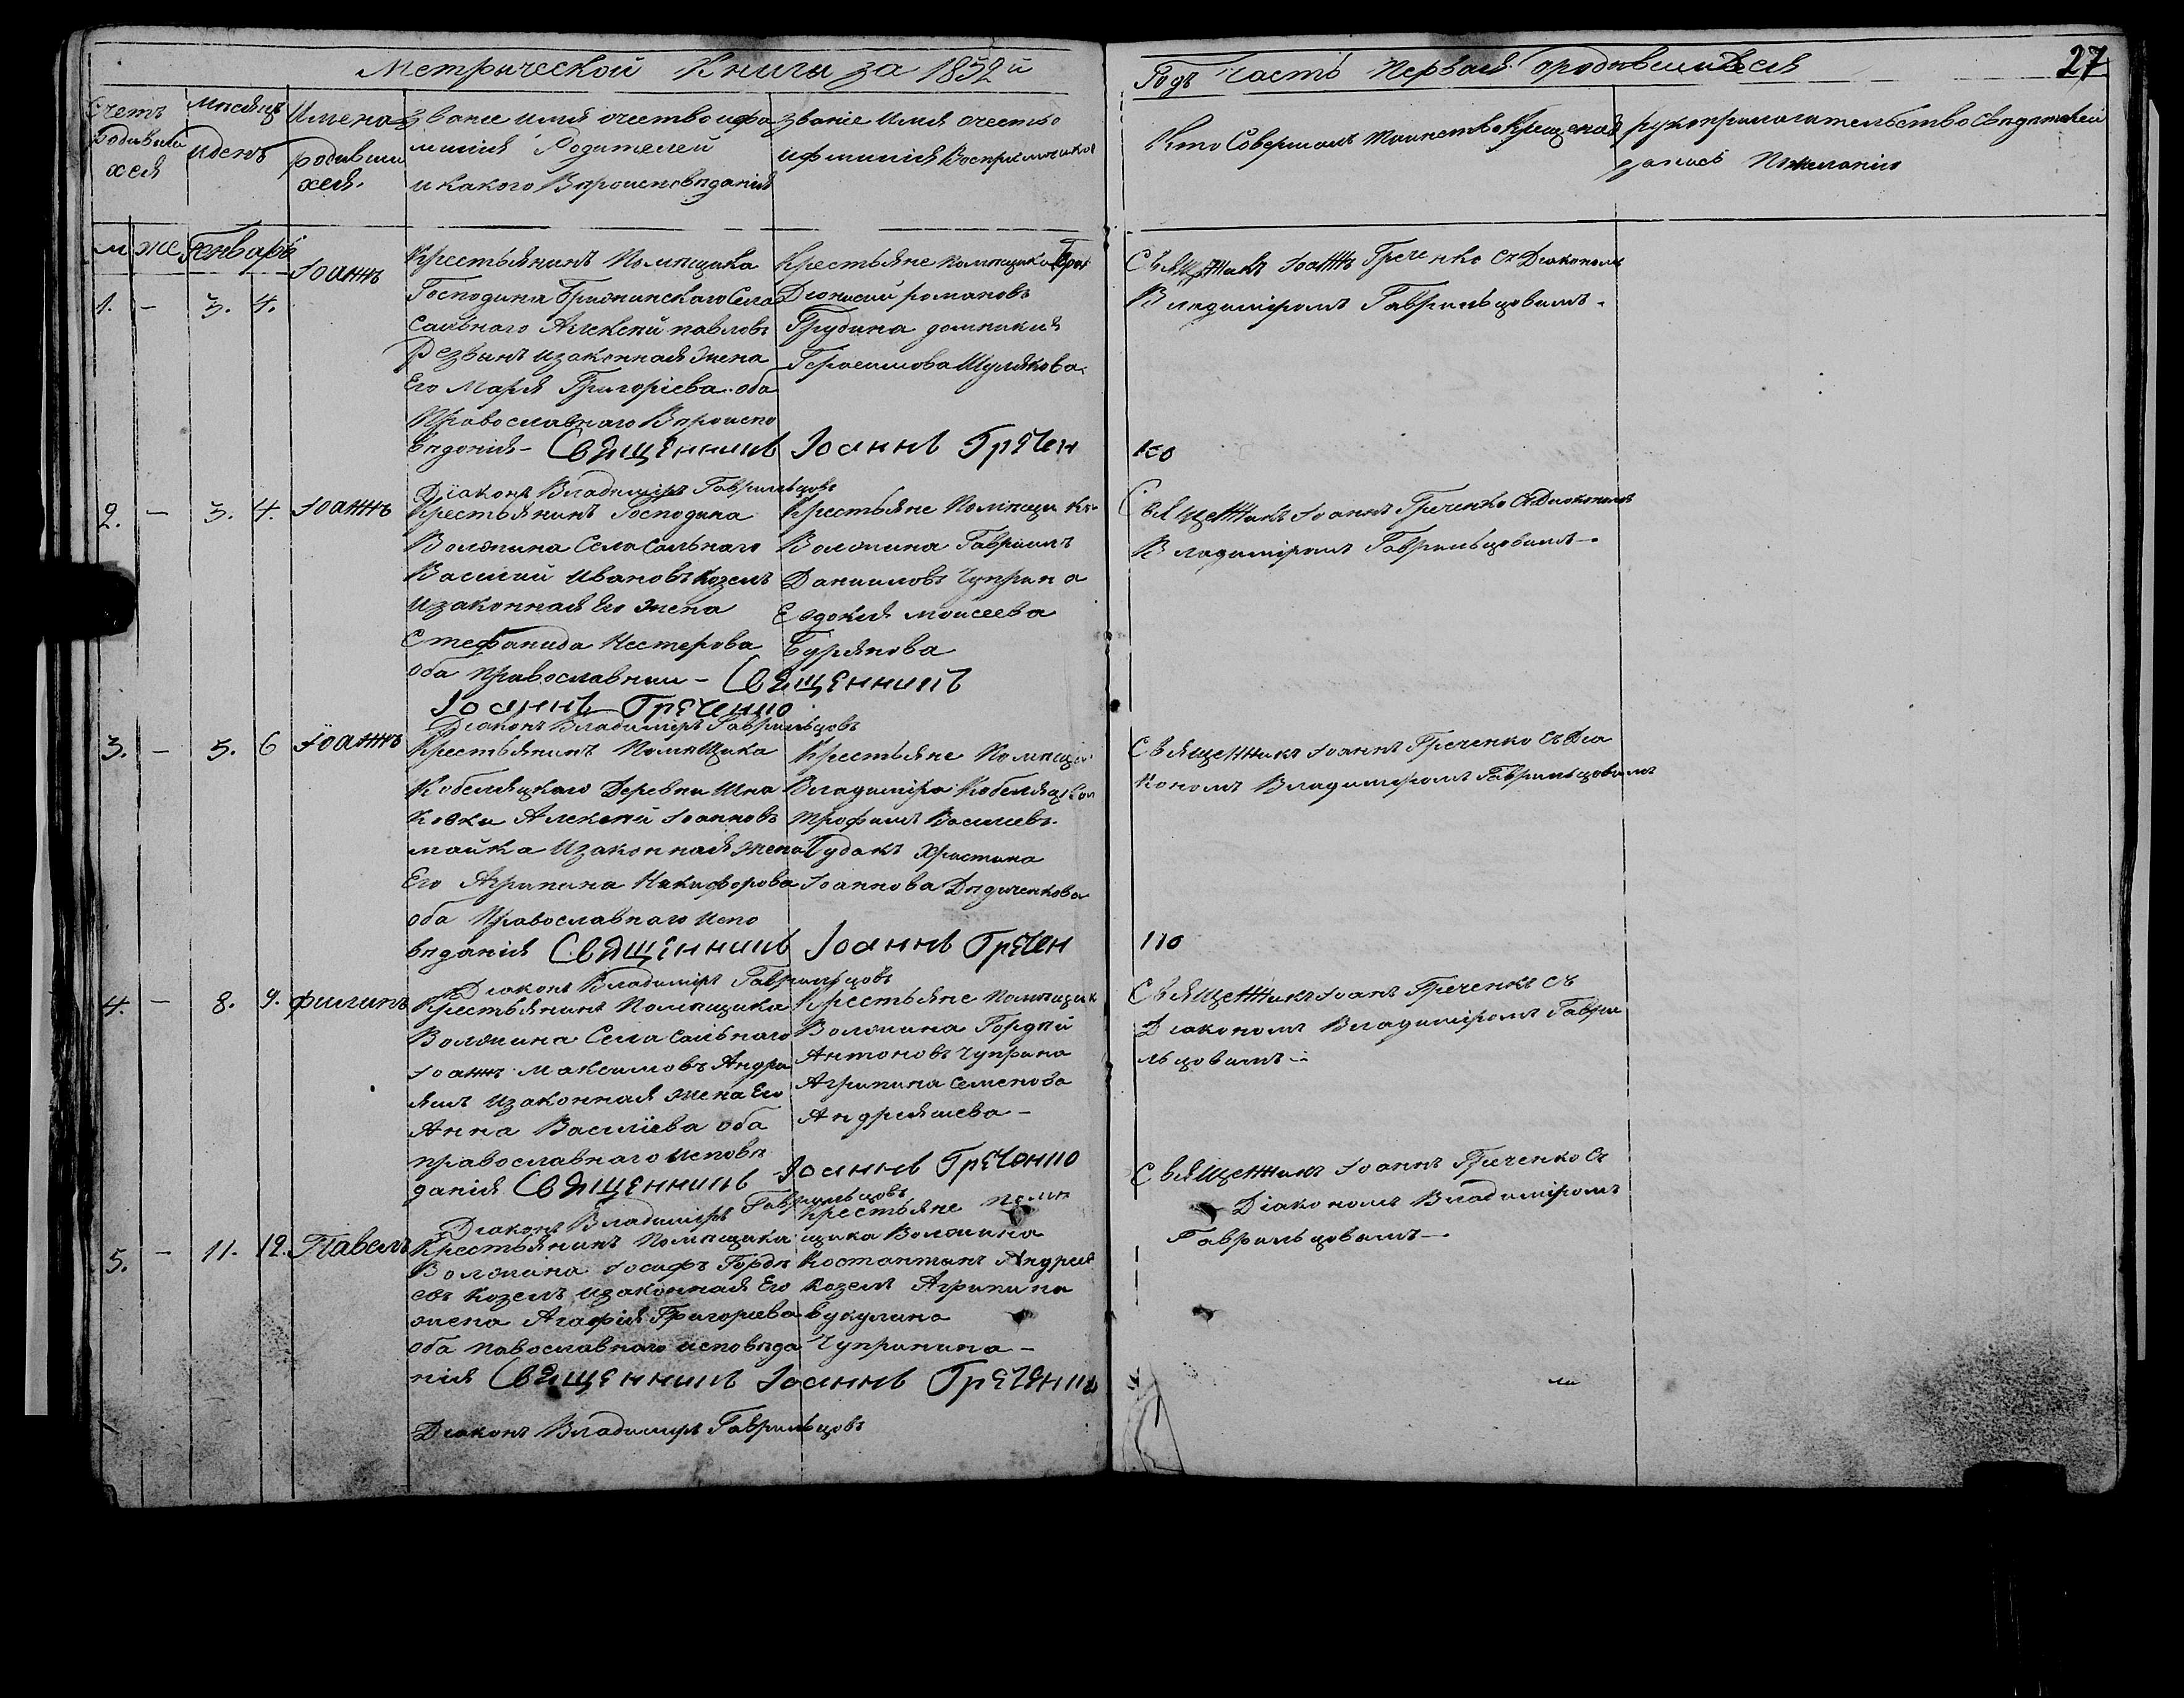 Метрической Книги за 1852й
Годъ Часть Первая Ородившихся
27
Счетъ родивши хся
Месяцъ и день
Имена родивши хся.
Званіе имя очество и фа
милія Родителей
и какого Вероисповеданія
Званіе Имя очество
и фамилія Воспріемников
Кто Совершалъ Таинство Крещенія
рукоприлагательство Свидетелей
записи По желанію
м же Генварь
1. — 3. 4. Іоаннъ
Крестьянинъ Помещика
Господина Села
Сальнаго Алексей павловъ
и законная жена
Его Марія Григоріева оба
Православнаго Вероиспо
веданія — Священникъ Іоаннъ Гречен
ко
Діаконъ Владиміръ Гаврильцовъ
Крестьяне помещика
Діонисий романовъ
Грудина домникия
Герасимова Шулякова.
Священникъ Іоаннъ Греченко съ Діакономъ
Владиміромъ Гаврильцовымъ.
2. — 3. 4. Іоаннъ
Крестьянинъ Господина
Воложина Села Сальнаго
Василий Ивановъ Козелъ
и законная Его жена
Стефанида Нестерова
оба православнии — Священникъ
Іоаннъ Греченко
Діаконъ Владиміръ Гаврильцовъ
Крестьяне Помещика
Воложина Гавриилъ
Данииловъ Чуприна
Евдокия моисеева
Бурякова
Священникъ Іоаннъ Греченко съ Діакономъ
Владиміромъ Гаврильцовымъ —.
3. — 5. 6 Іоаннъ
Крестьянинъ Помещика
Кобеляцкаго Деревни Шна
ковки Алексей Іоанновъ
майка и законная жена
Его Агрипина Никифорова
оба Православнаго испо
веданія Священникъ Іоаннъ Гречен
ко
Діаконъ Владиміръ Гаврильцовъ
Крестьяне Помещи
Владиміра Кобеляцкаго
трофимъ Василевъ
Гудакъ Христина
Іоаннова Дедиченкова
Священникъ Іоаннъ Греченко съ Діа
кономъ Владиміромъ Гаврильцовымъ
4. — 8. 9. Филипъ
Крестьянинъ Помещика
Воложина Села Сальнаго
Іоаннъ Максимовъ Андре
яшъ и законная жена Его
Анна Василіева оба
православнаго испове
данія Священникъ Іоаннъ Греченко
Діаконъ Владиміръ Гаврильцовъ
Крестьяне Помещик
Воложина Гордей
Антоновъ Чуприна
Агрипина Семенова
Андреяшева —
Священникъ Іоаннъ Греченко съ
Діакономъ Владиміромъ Гаври
льцовымъ —
5. — 11. 12. Павелъ
Крестьянинъ Помещика
Воложина Іосифъ Горде
евъ Козелъ и законная Его
жена Агафія Григорьева
оба павославнаго исповеда
нія Священникъ Іоаннъ Греченко
Діаконъ Владиміръ Гаврильцовъ
Крестьяне поме
щика Воложина
Костантинъ Андрея
Козелъ Агрипина
Вукулина
Чуприна —
Священникъ Іоаннъ Греченко съ
Діакономъ Владиміромъ
Гаврильцовымъ —.